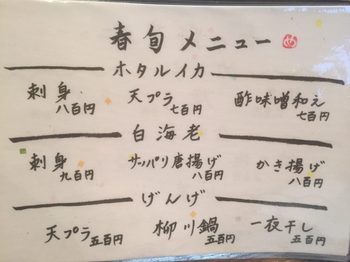 春旬メニュー
ホタルイカ
刺身 八百円 天プラ 七百円 酢味噌和え 七百円
白海老
刺身 九百円 サッパリ唐揚げ 八百円 かき揚げ 八百円
げんげ
天プラ 五百円 柳川鍋 五百円 一夜干し 五百円